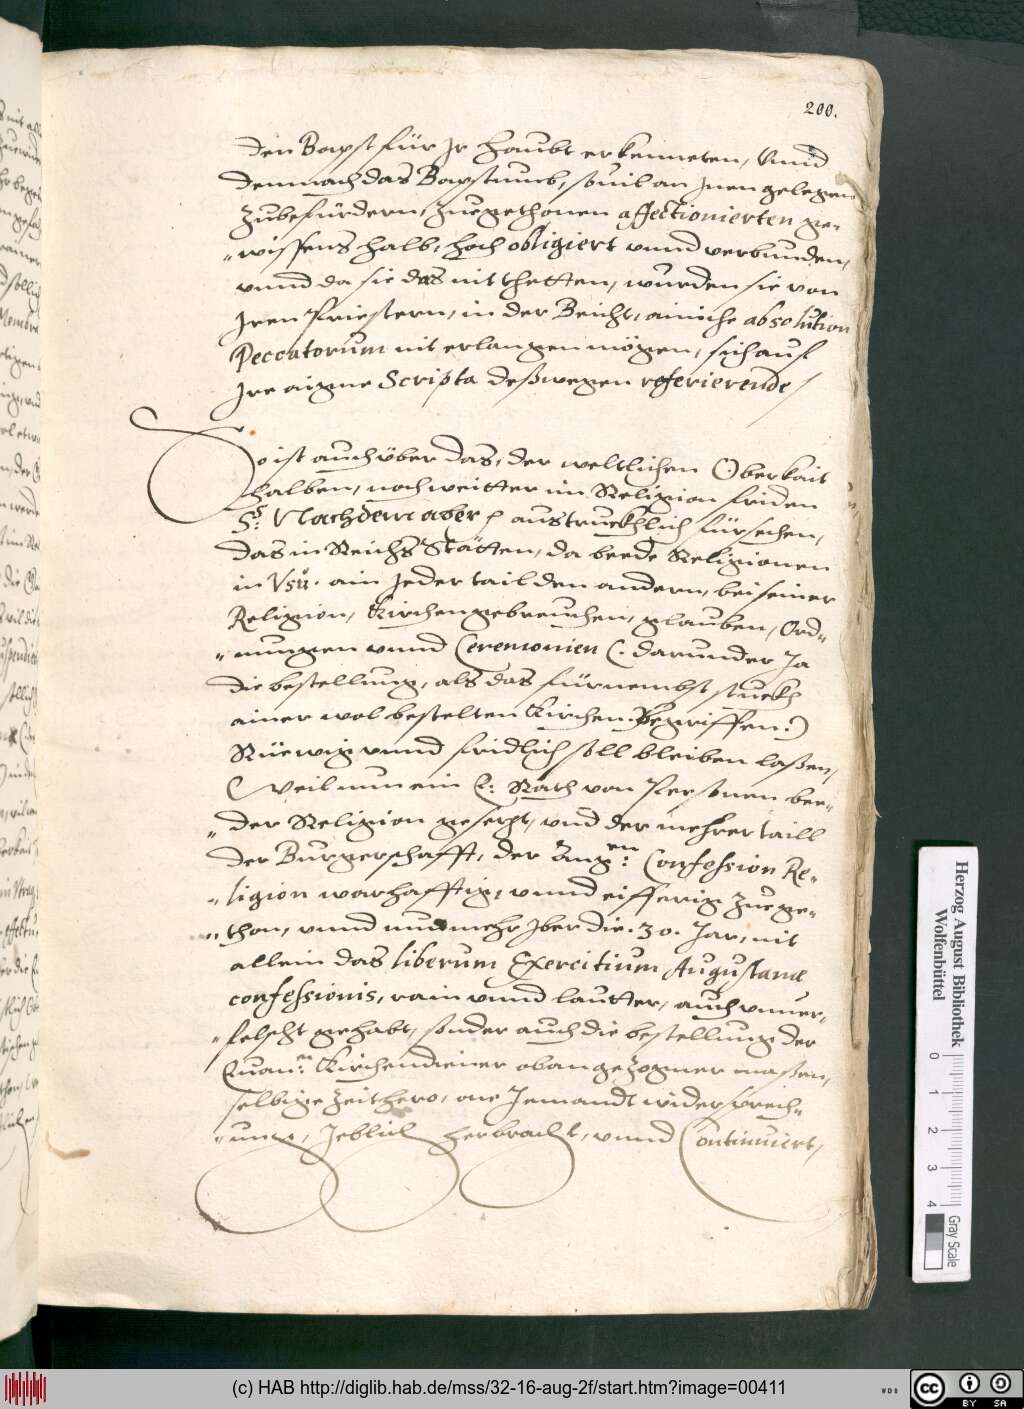 200.
den Bapst für Jr haubt erkenneten, Vnnd
demnach das Bapstumb, souil an Jnen gelegen
Zubefürdern, Zuegethonen affectionierten ge-
„wissens halb, hoch obligiert vnnd verbunden,
vnnd da sie das nit thetten, wurden sie von
Jren Priestern, in der Beicht, ainiche absolution
Peccatorum nit erlangen mögen, sich auf
Jre aigne Scripta deßwegen referierende /
So ist auch über das, der weltlichen Oberkait
halben, noch weitter im Religion friden
§. Nachdem aber / austruckhlich fürsehen,
das in Reichs Stätten, da beede Religionen
in Vsu. ain Jeder tail den andern, bei seiner
Religion, Kirchengebreuchen, glauben, Ord-
„nungen vnnd Ceremonien (. darunder Ja
die bestellung, als das fürnembst stuckh
ainer wol bestelten Kirchen Begriffen.)
Rüewig vnnd fridlich soll bleiben laßen,
Weil nun ein E: Rath von Personen bee-
„der Religion gesetzt, vnd der mehrer taill
der Burgerschafft, der Augen: Confession Re-
„ligion warhafftig, vnnd eifferig zue ge-
„thon, vnnd nunmehr Jber die .30. Jar, nit
allein das liberum Exercitium Augustanæ
confessionis, rain vnnd lautter, auch vnuer-
„felscht gehabt, sonder auch die bestellung der
Euanen: Kirchendiener oban gezogner maßen,
selbige Zeithero, one Jemandt widersprech-
„ung, Jeblich herbracht, vnnd Continuiert,
Herzog August Bibliothek
Wolfenbüttel
0 1 2 3 4
Gray Scale
(c) HAB http://diglib.hab.de/mss/32-16-aug-2f/start.htm?image=00411
WDB
cc BY SA